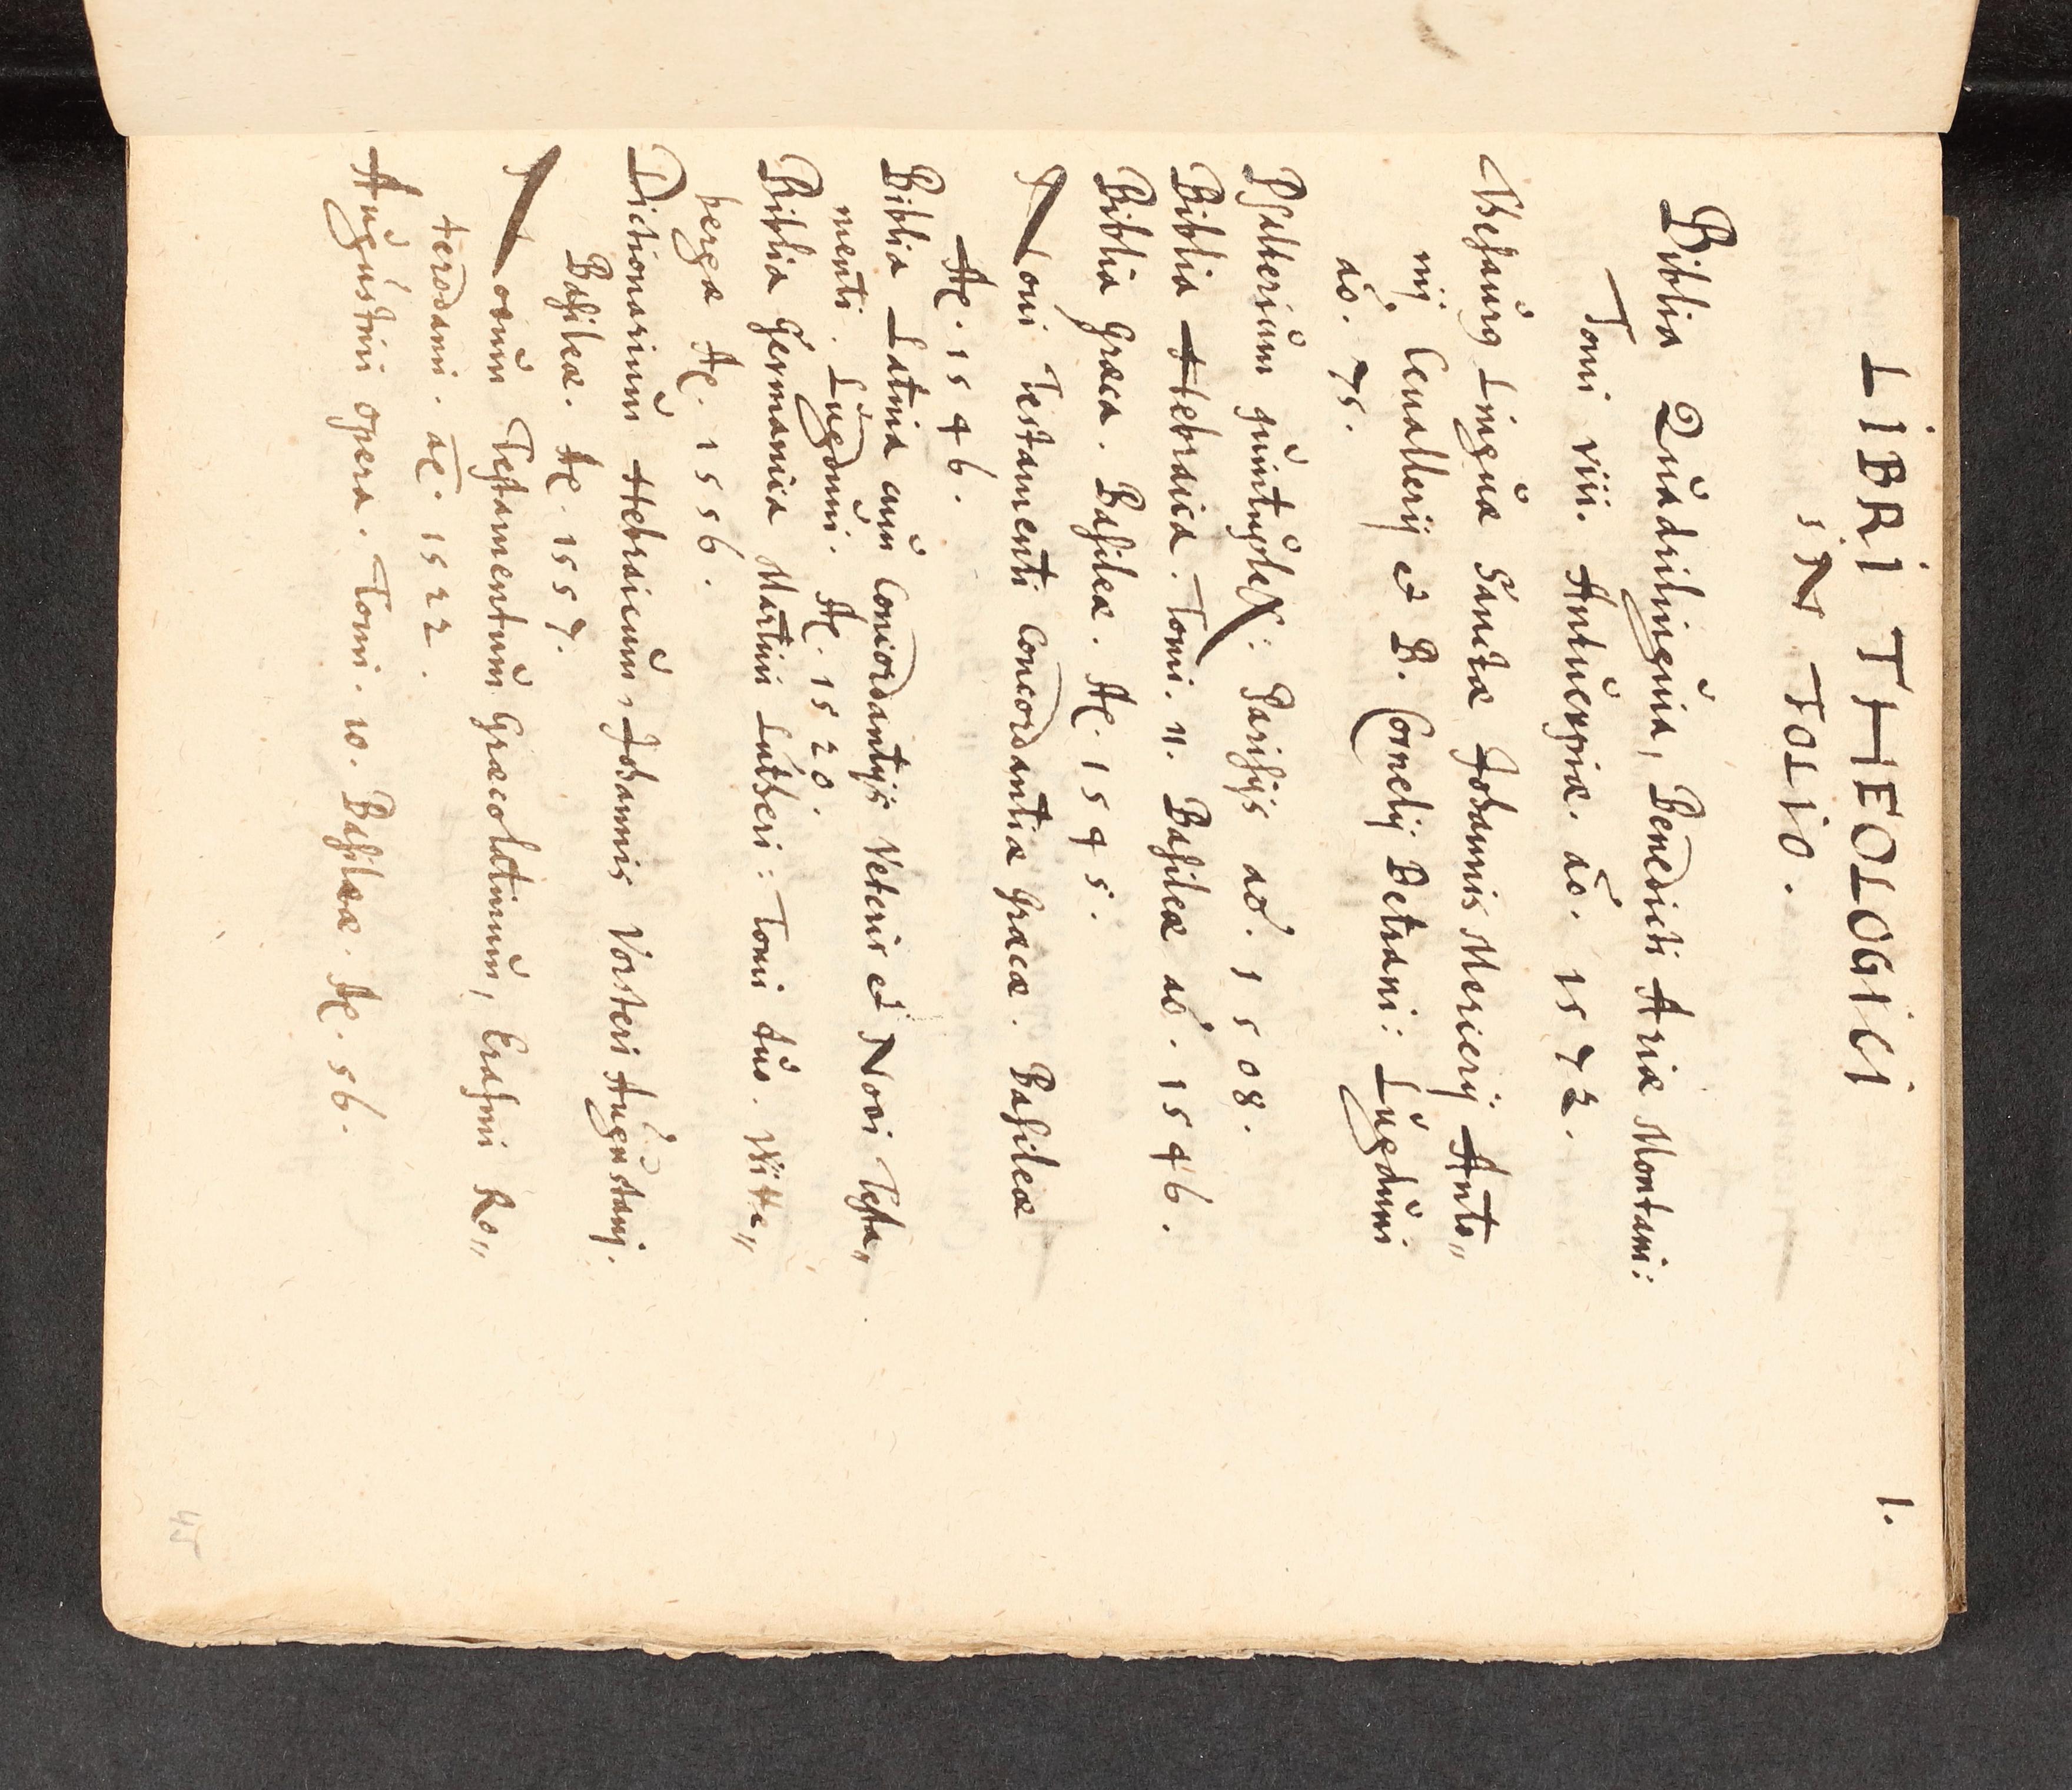 1.
LIBRI THEOLOGICI
IN FOLIO.
Biblia Quadrilinguia, Benedicti Ariæ Montani:
Tomi viii. Antuerpiæ. ao. 1572.
Thesaurus Linguæ Sanctæ Johannis Mericerij Anto„
nij Ceuallerij et B. Cornelij Betrami: Lugduni
ao. 75.
Psalterium quintuplex: Parisijs ao. 1508.
Biblia Hebraica. Tomi. 11. Basileæ ao. 1546.
Biblia Græca. Basileæ. Ae. 1545.
Noui Testamenti Concordantiæ Græcæ. Basileæ
Ae. 1546.
Biblia Latina cum Concordantijs Veteris et Novi Testa„
menti. Lugduni. Ae. 1520.
Biblia Germanica Martini Lutheri: Tomi duo. Witte„
bergæ Ae. 1556.
Dictionarium Hebraicum, Johannis Vorsteri Augustani.
Basileæ. Ae. 1557.
Novum Testamentum Græcolatinum, Erasmi Ro„
terodami. ae. 1522.
Augustini opera. Tomi. 10. Basileæ. Ae. 56.
45